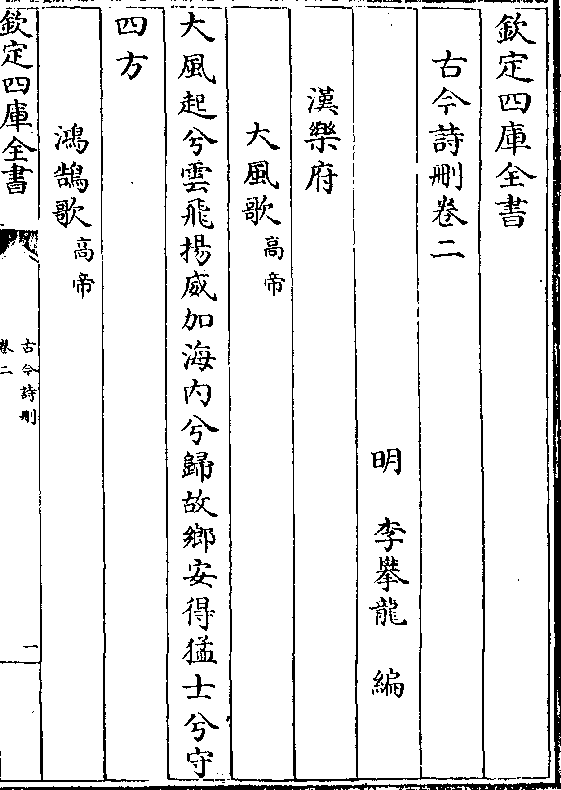 欽定四庫全書
古今詩刪卷二
明　李攀龍　編
漢樂府
大風歌高帝
大風起兮雲飛揚威加海内兮歸故鄉安得猛士兮守
四方
鴻鵠歌高帝
欽定四庫全書
古今詩刪
卷二
一